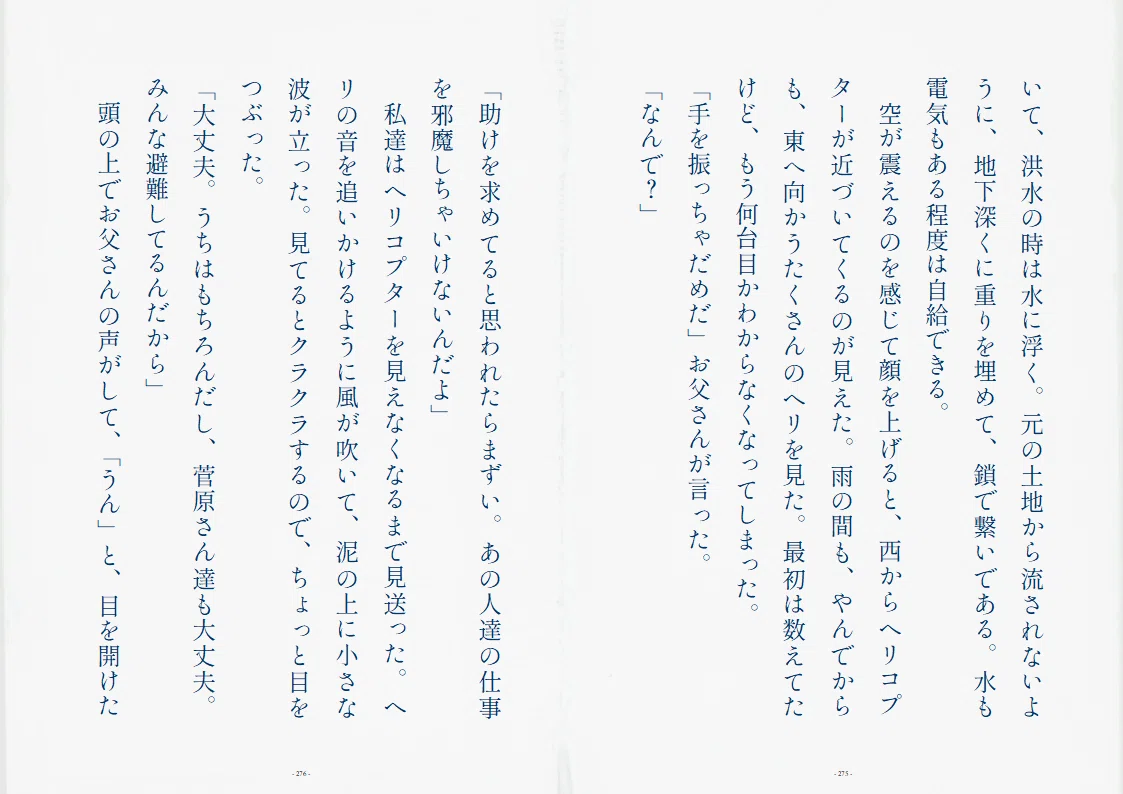 いて、洪水の時は水に浮く。元の土地から流されないよ
うに、地下深くに重りを埋めて、鎖で繋いである。水も
電気もある程度は自給できる。
　空が震えるのを感じて顔を上げると、西からヘリコプ
ターが近づいてくるのが見えた。雨の間も、やんでから
も、東へ向かうたくさんのヘリを見た。最初は数えてた
けど、もう何台目かわからなくなってしまった。
「手を振っちゃだめだ」お父さんが言った。
「なんで？」
- 275 -
「助けを求めてると思われたらまずい。あの人達の仕事
を邪魔しちゃいけないんだよ」
　私達はヘリコプターを見えなくなるまで見送った。ヘ
リの音を追いかけるように風が吹いて、泥の上に小さな
波が立った。見てるとクラクラするので、ちょっと目を
つぶった。
「大丈夫。うちはもちろんだし、菅原さん達も大丈夫。
みんな避難してるんだから」
　頭の上でお父さんの声がして、「うん」と、目を開けた
- 276 -